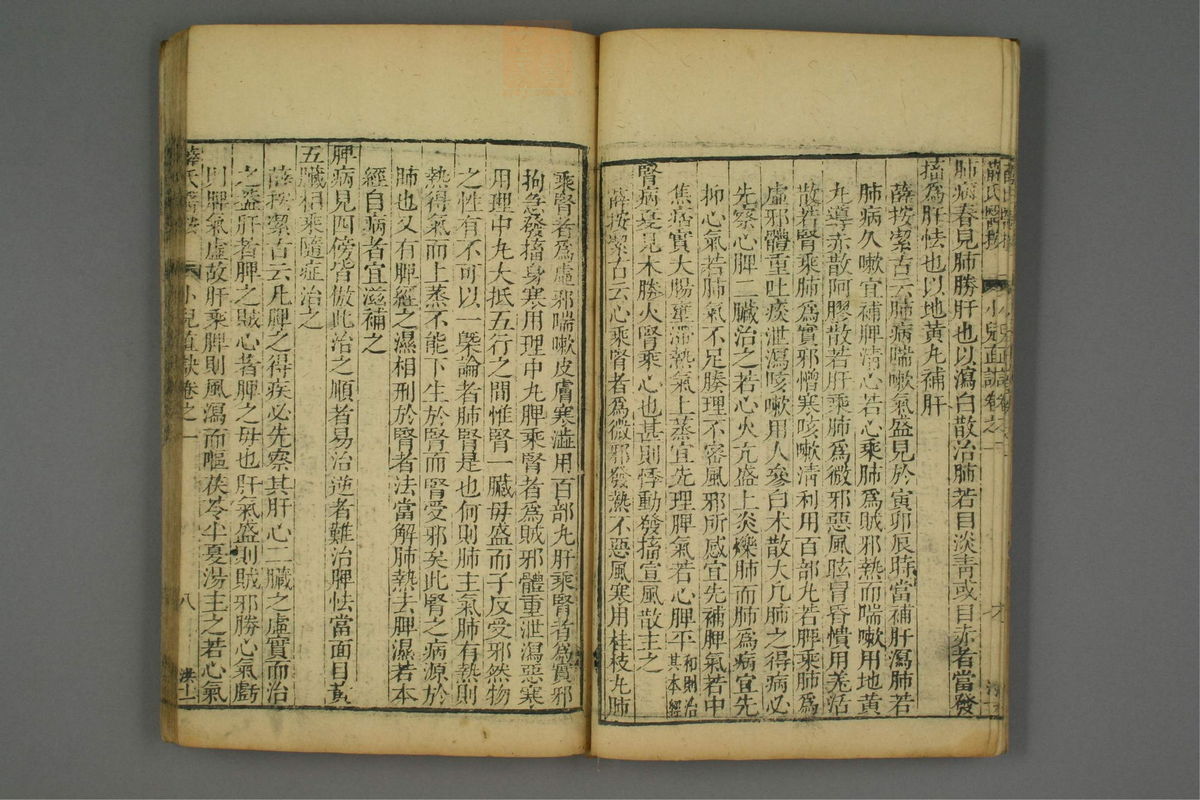 薛氏醫按 小兒直訣卷之一
肺病春見肺勝肝也以瀉白散治肺若目淡青或目赤者當發
搐為肝怯也以地黄丸補肝
薛按潔古云肺病喘嗽氣盛見於寅卯辰時當補肝瀉肺若
肺病久嗽宜補脾清心若心乘肺為賊邪熱而喘嗽用地黄
九導赤散阿膠散若肝乘肺為微邪惡風眩冒昏憒用羗活
散若腎乘肺為實邪憎寒咳嗽清利用百部丸若脾乘肺為
虛邪體重吐痰泄瀉咳嗽用人參白朮散大凡肺之得病必
先察心脾二臟治之若心火亢盛上炎爍肺而肺為病宜先
抑心氣若肺氣不足腠理不密風邪所感宜先補脾氣若中
焦痞實大腸壅滯熱氣上蒸宜先理脾氣若心脾平和則治其本經
腎病夏見木勝火腎乘心也甚則悸動發搐宣風散主之
薛按潔古云心乘腎者為微邪發熱不惡風寒用桂枝丸肺
乘腎者為虛邪喘嗽皮膚寒澁用百部丸肝乘腎者為實邪
拘急發搐身寒用理中丸脾乘腎者為賊邪體重泄瀉惡寒
用理中丸大抵五行之間惟腎一臟母盛而子反受邪然物
之性有不可以一槩論者肺腎是也何則肺主氣肺有熱則
熱得氣而上蒸不能下生於腎而腎受邪矣此腎之病源於
肺也又有脾經之濕相刑於腎者法當解肺熱去脾濕若本
經自病者宜滋補之
脾病見四傍皆倣此治之順者易治逆者難治脾怯當面目黄
五臟相乘隨症治之
薛按潔古云凡脾之得疾必先察其肝心二臟之虛實而治
之盖肝者脾之賊心者脾之母也肝氣盛則賊邪勝心氣虧
則脾氣虛故肝乘脾則風瀉而嘔茯苓半夏湯主之若心氣
薛氏醫按 小兒直訣卷之一 八